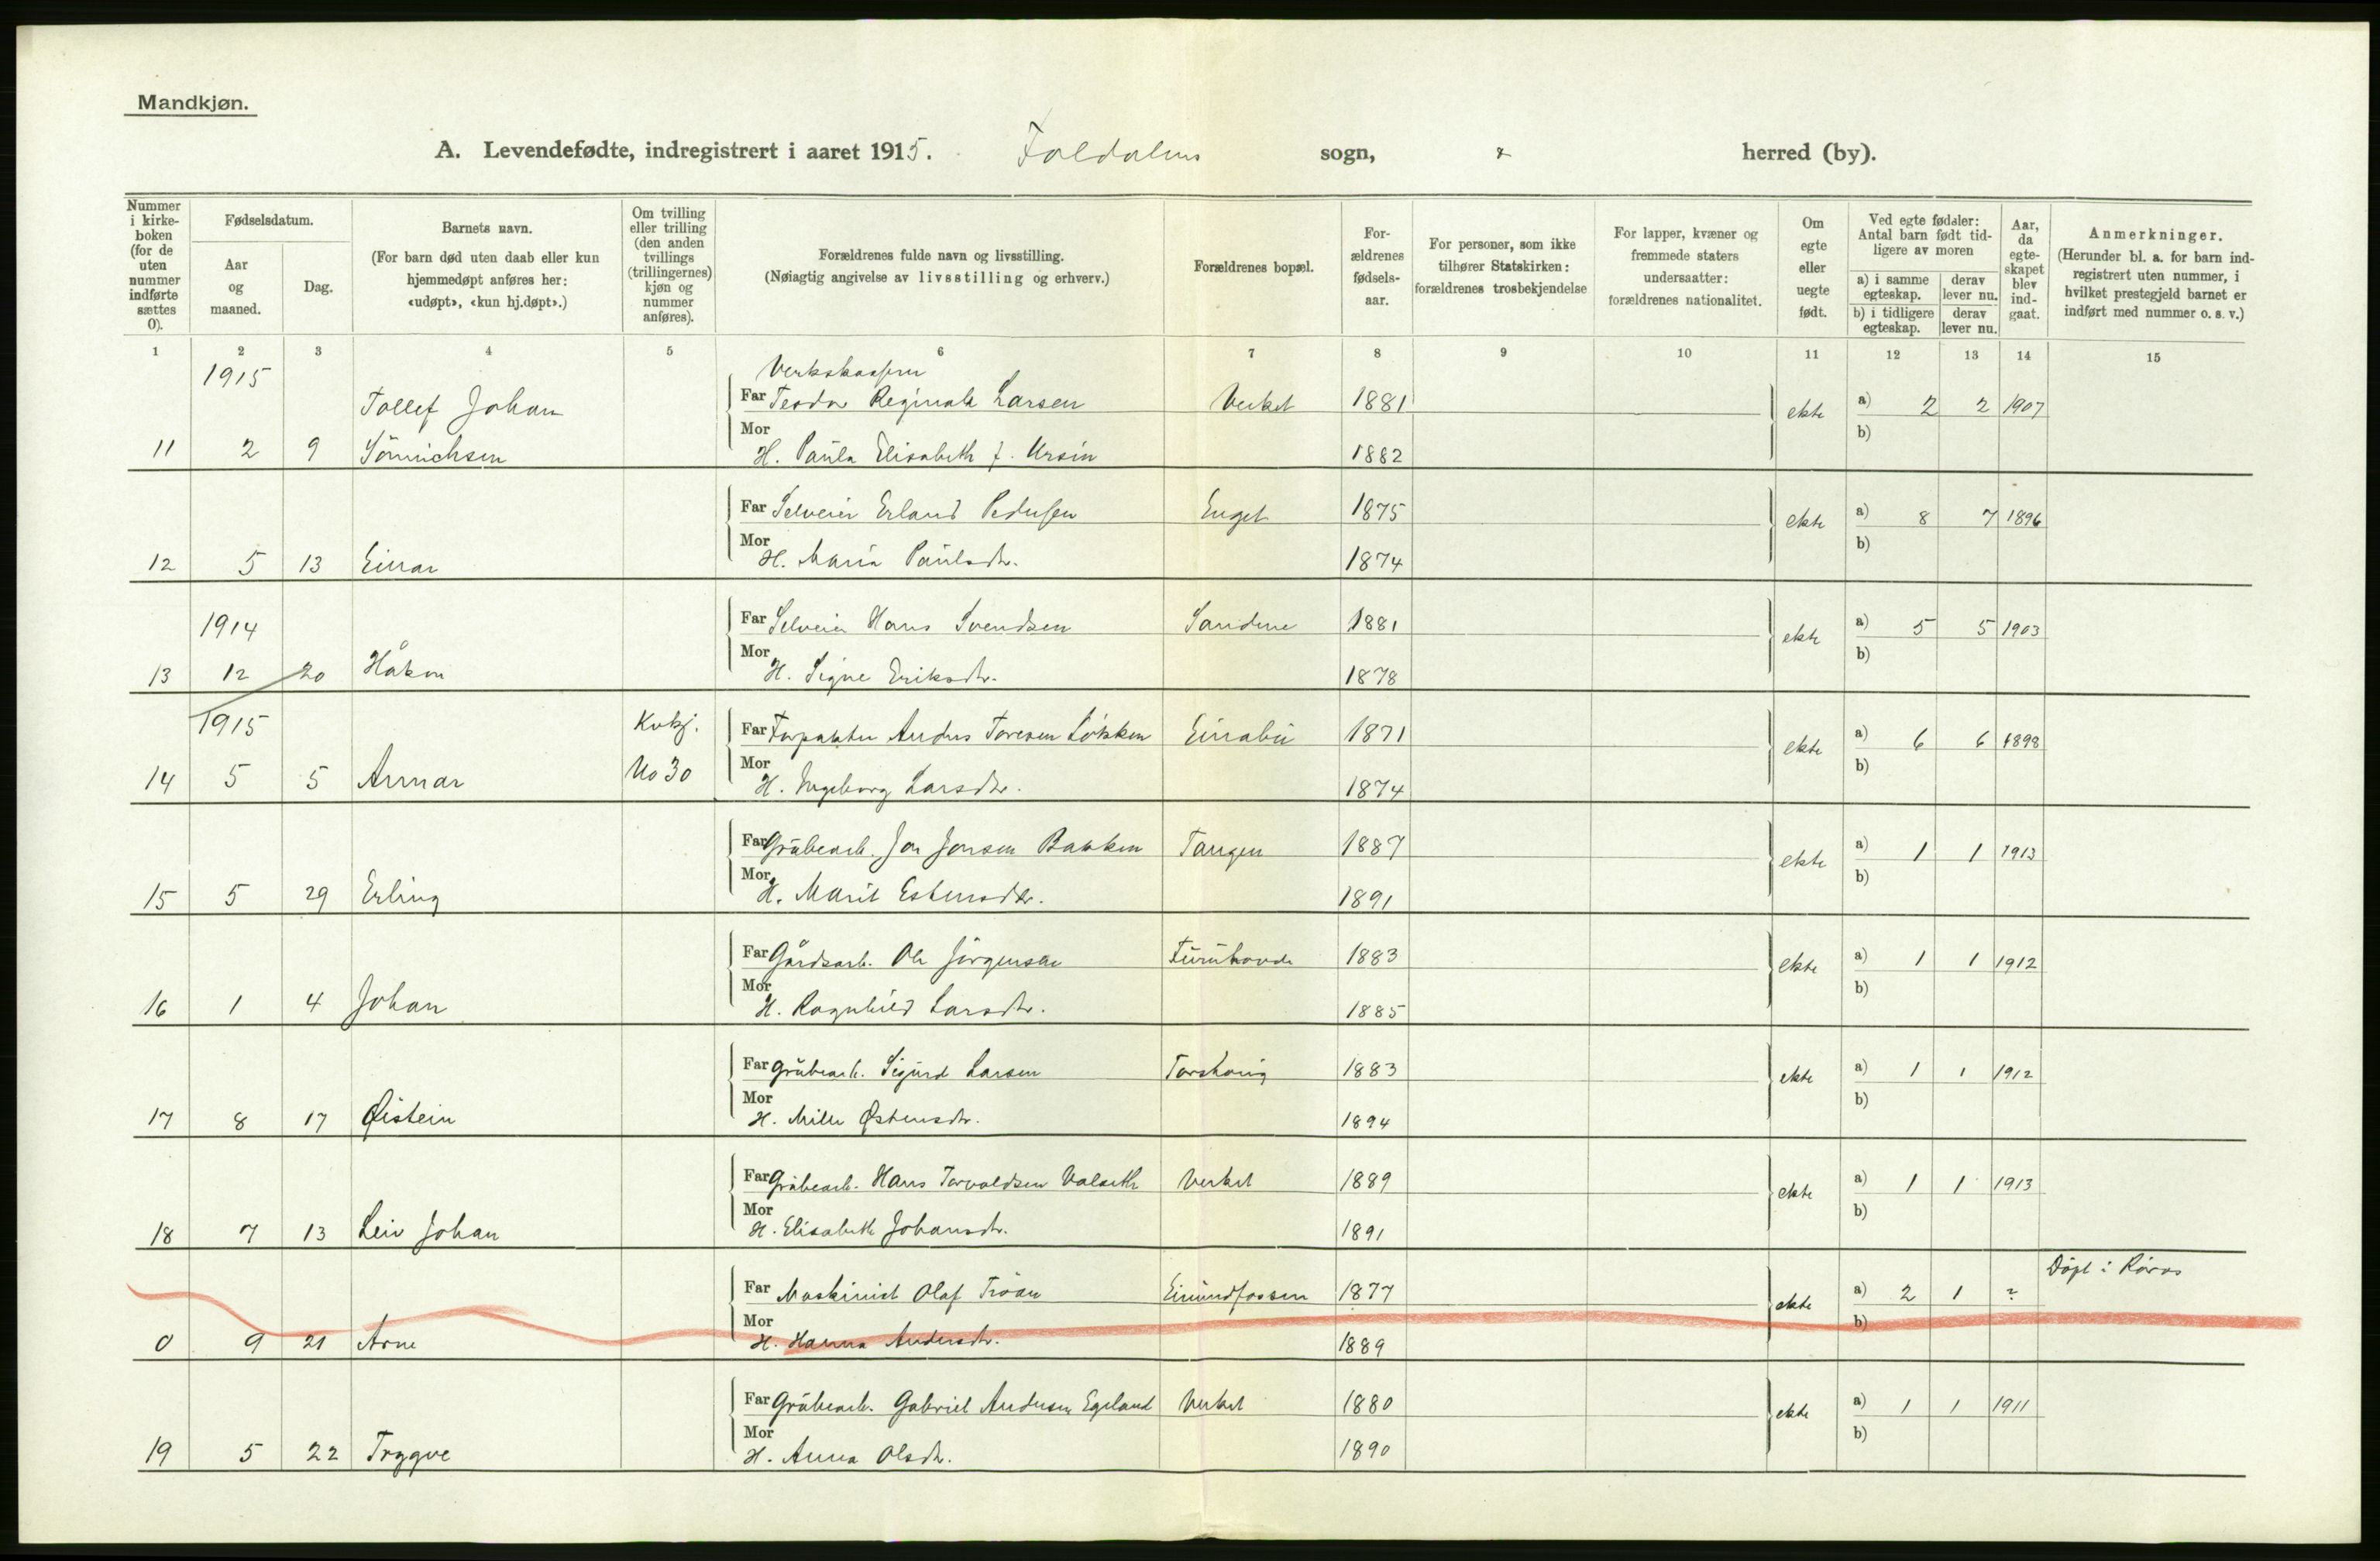 Mandkjøn.
A. Levendefødte, indregistrert i aaret 1915. Foldalens sogn, herred (by).
Nummer i kirkeboken (for de uten nummer indførte sættes 0).
Fødselsdatum.
Aar og maaned.
Dag.
Barnets navn.
(For barn død uten daab eller kun hjemmedøpt anføres her: «udøpt», «kun hj.døpt».)
Om tvilling eller trilling (den anden tvillings (trillingernes) kjøn og nummer anføres).
Forældrenes fulde navn og livsstilling.
(Nøiagtig angivelse av livsstilling og erhverv.)
Forældrenes bopæl.
Forældrenes fødselsaar.
For personer, som ikke tilhører Statskirken: forældrenes trosbekjendelse
For lapper, kvæner og fremmede staters undersaatter: forældrenes nationalitet.
Om egte eller uegte født.
Ved egte fødsler: Antal barn født tidligere av moren
a) i samme egteskap. derav lever nu.
b) i tidligere egteskap. derav lever nu.
Aar, da egteskapet blev indgaat.
Anmerkninger.
(Herunder bl. a. for barn indregistrert uten nummer, i hvilket prestegjeld barnet er indført med nummer o. s. v.)
1 2 3 4 5 6 7 8 9 10 11 12 13 14 15
1915
Tollef Johan Far Teodor Larsen Verket 1881 ekte a) 2 2 1907
b)
11 2 9 Sönnichsen Mor H. Paula Elisabeth f. Ursin 1882
Far Selveier Erland Pedersen Enget 1875 ekte a) 8 7 1896
b)
12 5 13 Einar Mor H. Maria Paulsdtr. 1874
1914 Far Selveier Hans Svendsen 1881 ekte a) 5 5 1903
b)
13 12 20 Håkon Mor H. Signe Eriksdtr. 1878
1915 Kvkj. Far Forpakter Anders Toresen Løkken Einabu 1871 ekte a) 6 6 1898
b)
14 5 5 No 30 Mor H. Ingeborg Larsdtr. 1874
Far Grubearb. Jon Jonsen Bakken Tangen 1887 ekte a) 1 1 1913
b)
15 5 29 Erling Mor H. Marit Estensdtr. 1891
Far Gårdsarb. Ole Jörgensen Furuhovde 1883 ekte a) 1 1 1912
b)
16 1 4 Johan Mor H. Ragnhild Larsdtr. 1885
Far Grubearb. Sigurd Larsen 1883 ekte a) 1 1 1912
b)
17 8 17 Øistein Mor H. Østensdtr. 1894
Far Grubearb. Hans Torvaldsen Valseth Verket 1889 ekte a) 1 1 1913
b)
18 7 13 Leiv Johan Mor H. Elisabeth Johansdtr. 1891
Döpt i Röros
Far Maskinist Olaf Tröan Einundfossen 1877 ekte a) 2 1 ?
b)
0 9 21 Arne Mor H. Hanna Andersdtr. 1889
Far Grubearb. Gabriel Andersen Egeland Verket 1880 ekte a) 1 1 1911
b)
19 5 22 Trygve Mor H. Anna Olsdtr. 1890